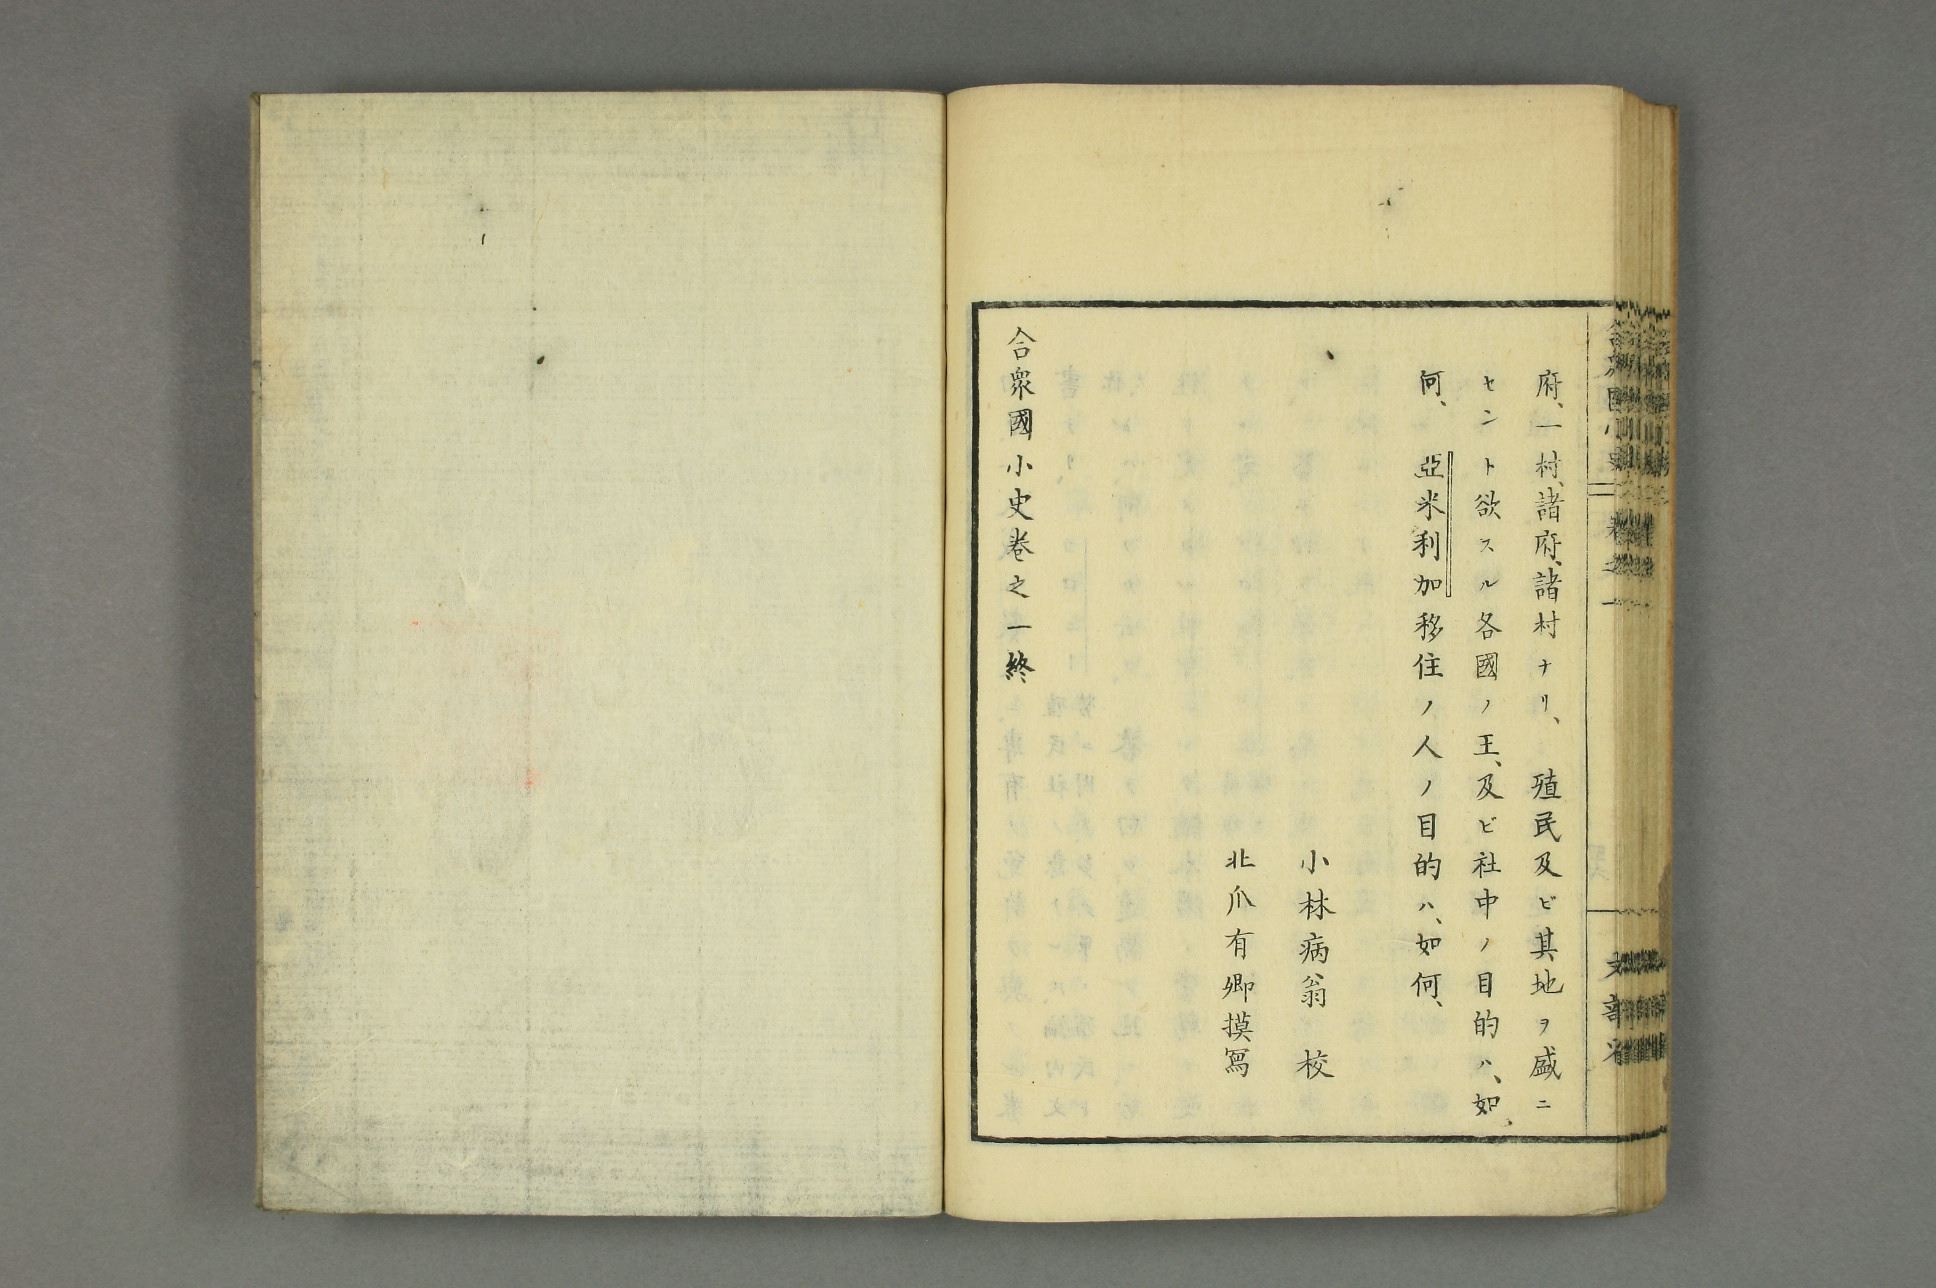 府、一村、諸府、諸村ナリ、殖民及ビ其地ヲ盛ニ
セント欲スル各國ノ王、及ビ社中ノ目的ハ、如、
何、亞米利加移住ノ人ノ目的ハ、如何、
小林病翁 校
北爪有卿摸寫
合衆國小史卷之一終